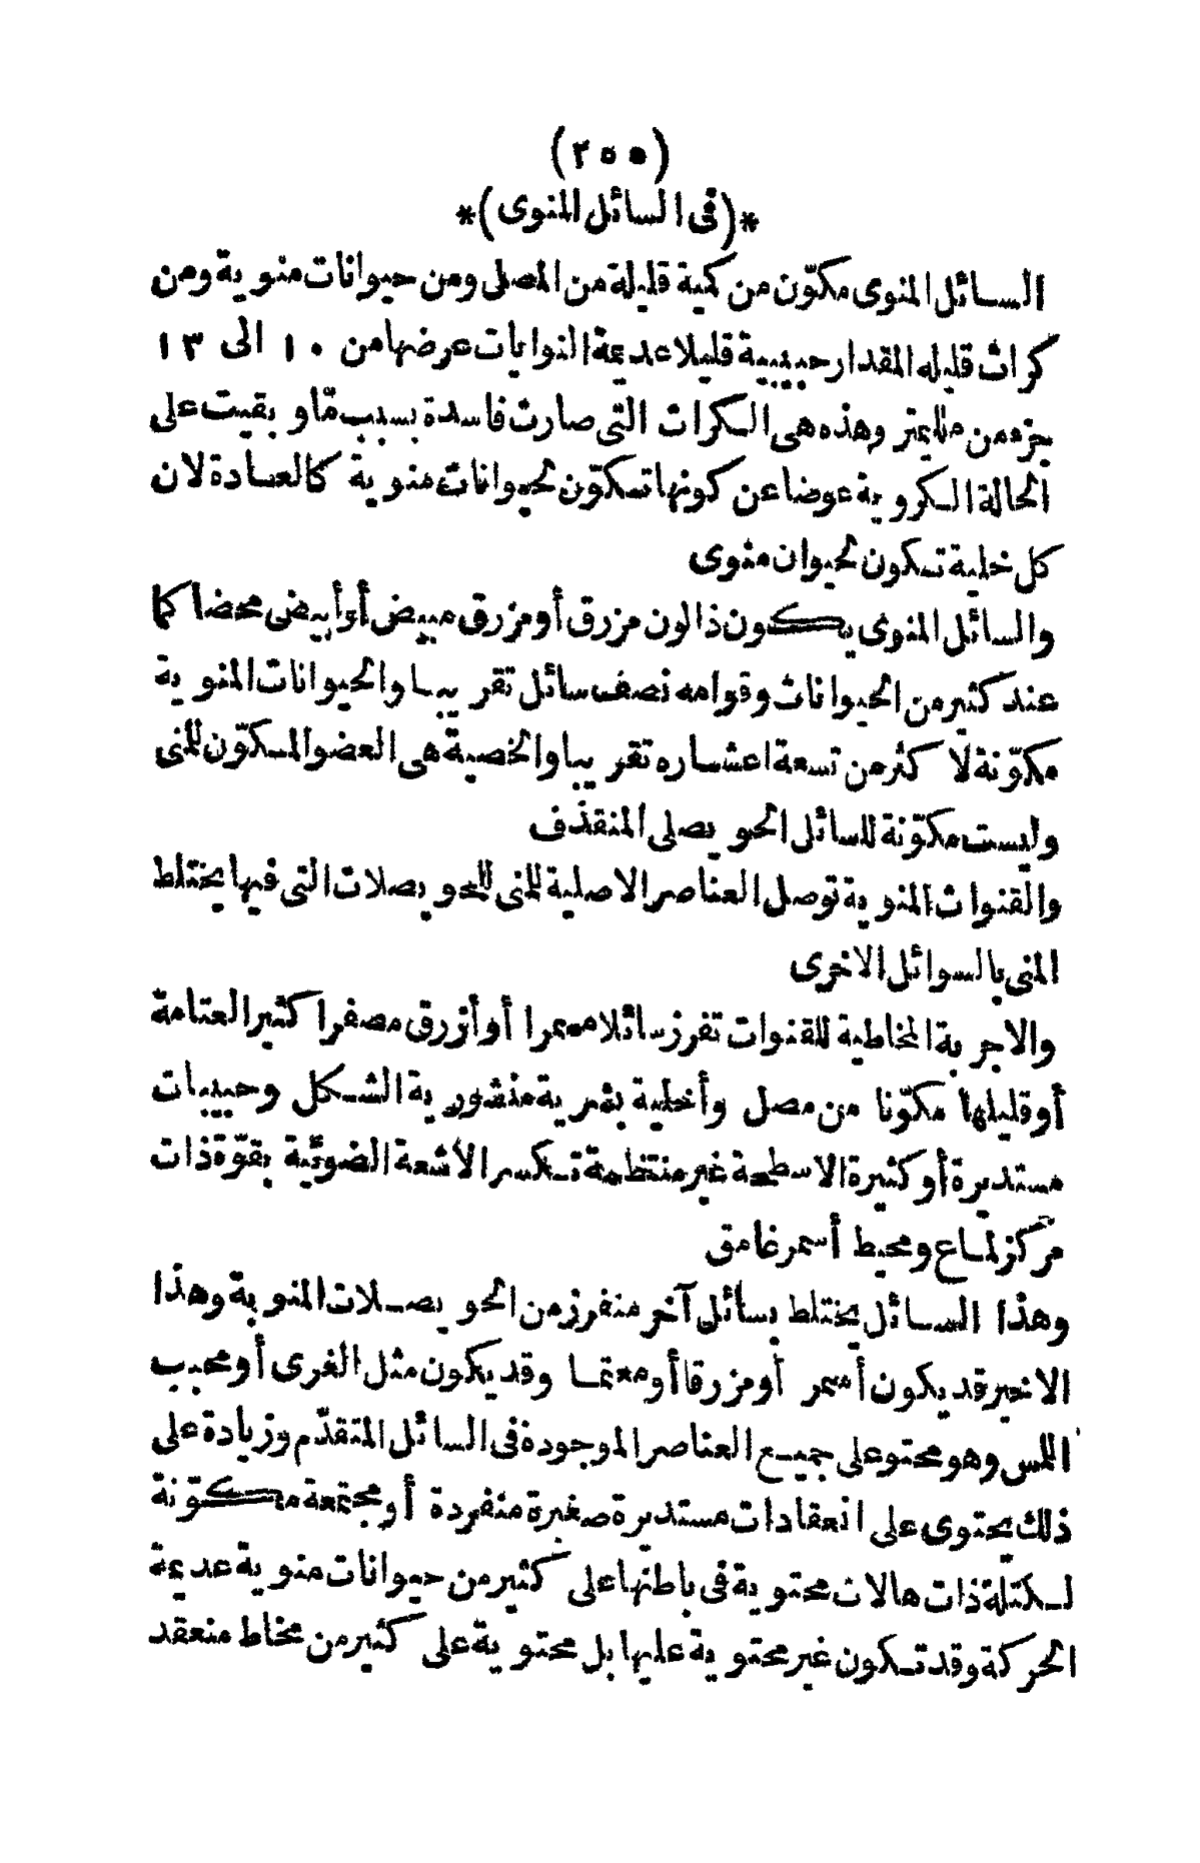 (٢٥٥)
*(فى السائل المنوى)*
السائل المنوى مكوّن من كمية قليلة من المصلى ومن حيوانات منوية ومن
كرات قليله المقدار حبيبية قليلا عديمة النوايات عرضها من ١٠ الى ١٣
جزء من ملليمتر وهذه هى الكرات التى صارت فاسدة بسبب مّا وبقيت على
الحالة الكروية عوضا عن كونها تسكوّن لحيوانات منوية كالعادة لان
كل خلية تسكون لحيوان منوى
والسائل المنوى يكون ذا لون مزرق أو مزرق مبيض أو أبيض محضا كما
عند كثير من الحيوانات وقوامه نصف سائل تقريبا والحيوانات المنوية
مكوّنة لا كثر من تسعة اعشاره تقريبا والخصية هى العضو المكوّن للمنى
وليست مكوّنة للسائل الحويصلى المنقذف
والقنوات المنوية توصل العناصر الاصلية للمنى للحويصلات التى فيها يختلط
المنى بالسوائل الاخرى
والاجربة المخاطية للقنوات تفرز سائلا مسمرا أو أزرق مصفرا كثير العتامة
أو قليلها مكوّنا من مصل وأخلية بشرية منشورية الشكل وحبيبات
مستديرة أو كثيرة الاسطحة غير منتظمة تكسر الأشعة الضوئية بقوّة ذات
مركز لماع ومحيط أسمر غامق
وهذا السائل يختلط بسائل آخر منفرز من الحويصلات المنوية وهذا
الاخير قد يكون أسمر أو مزرقا أو معتما وقد يكون مثل الغرى أو محبب
اللمس وهو محتو على جميع العناصر الموجودة فى السائل المتقدّم وزيادة على
ذلك يحتوى على انعقادات مستديرة صغيرة منفردة أو مجتمعة مكوّنة
لكتلة ذات هالات محتوية فى باطنها على كثير من حيوانات منوية عديمة
الحركة وقد تكون غير محتوية عليها بل محتوية على كثير من مخاط منعقد